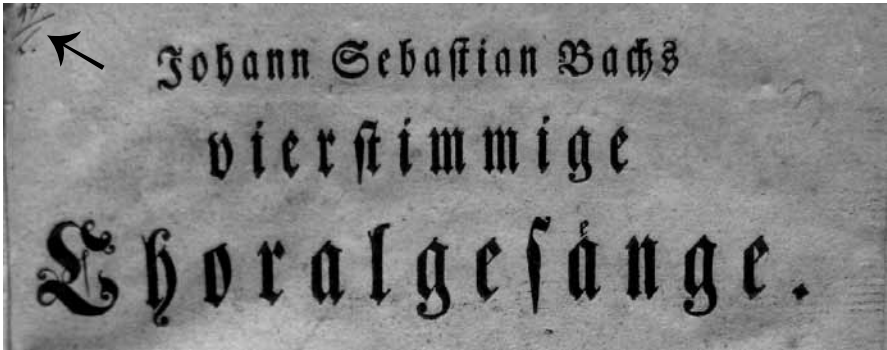 Johann Sebaſtian Bachs
vierſtimmige
Choralgeſaͤnge.